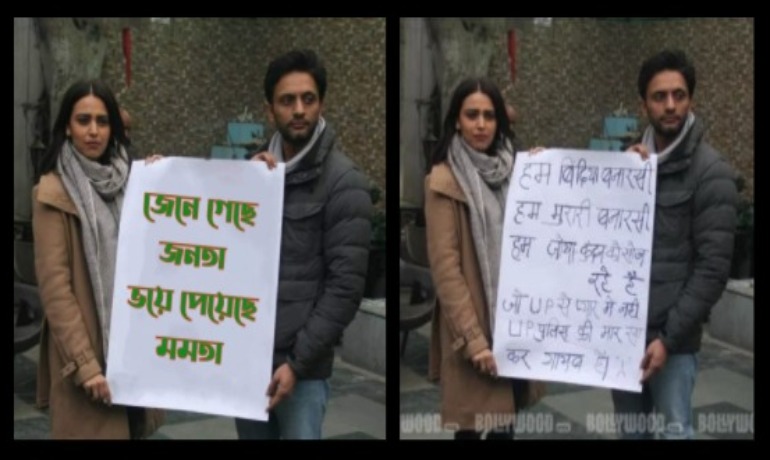 জেনে গেছে
জনতা
ভয়ে পেয়েছে
মমতা
हम बिंदिया बनारसी
हम मुरारी बनारसी
हम जोया
को खोज
रहे है
जो UP से प्यार में
UP पुलिस की मार खा
कर गायब है
BOLLYWOOD
BOLLYWOOD
BOLLYWOOD